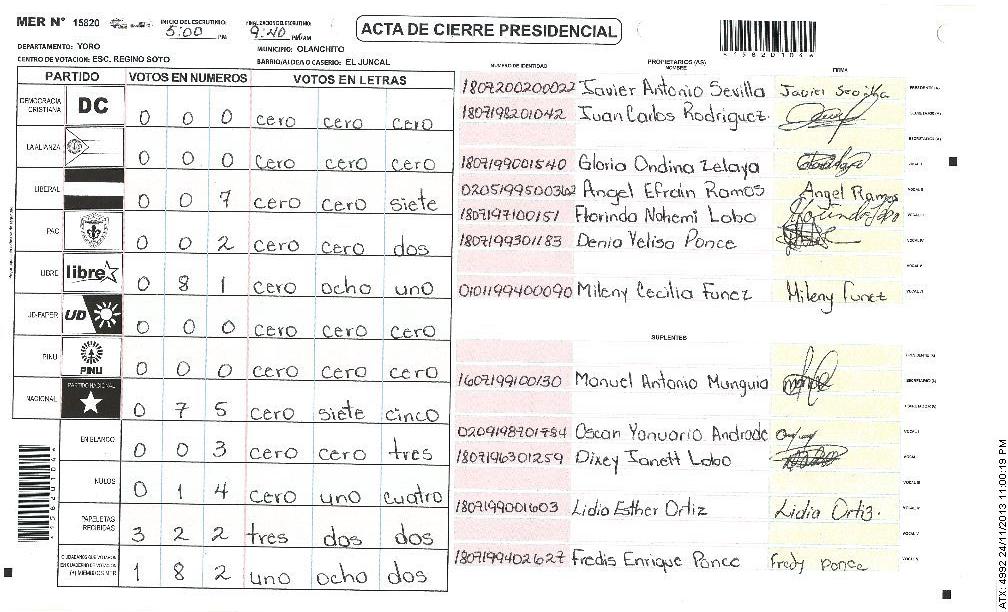 MER N° 15820
INICIO DEL ESCRUTINIO: 5:00 PM
FINALIZACION DEL ESCRUTINIO: 9:40 PM/AM
ACTA DE CIERRE PRESIDENCIAL
DEPARTAMENTO: YORO
MUNICIPIO: OLANCHITO
CENTRO DE VOTACION: ESC. REGINO SOTO
BARRIO/ALDEA O CASERIO: EL JUNCAL
PARTIDO VOTOS EN NUMEROS VOTOS EN LETRAS
DEMOCRACIA CRISTIANA DC 0 0 0 cero cero cero
LA ALIANZA 0 0 0 cero cero cero
LIBERAL 0 0 7 cero cero siete
PAC 0 0 2 cero cero dos
LIBRE libre 0 8 1 cero ocho uno
UD-FAPER UD 0 0 0 cero cero cero
PINU PINU 0 0 0 cero cero cero
NACIONAL PARTIDO NACIONAL 0 7 5 cero siete cinco
EN BLANCO 0 0 3 cero cero tres
NULOS 0 1 4 cero uno cuatro
PAPELETAS RECIBIDAS 3 2 2 tres dos dos
CIUDADANOS QUE VOTARON EN CUADERNO DE VOTACION (+) MIEMBROS MER 1 8 2 uno ocho dos
NUMERO DE IDENTIDAD PROPIETARIOS (AS) NOMBRE FIRMA
1807200200022 Javier Antonio Sevilla Javier Sevilla PRESIDENTE (A)
1807198201042 Juan Carlos Rodriguez. SECRETARIO (A)
ESCRUTADOR (A)
1807199001540 Gloria Ondina Zelaya VOCAL I
0205199500362 Angel Efraín Ramos Angel Ramos VOCAL II
1807197100151 Florinda Nohemi Lobo VOCAL III
1807199301183 Denia Yelisa Ponce VOCAL IV
VOCAL V
0101199400090 Mileny Cecilia Funez Mileny Funez VOCAL VI
SUPLENTES
PRESIDENTE (A)
1607199100130 Manuel Antonio Munguia SECRETARIO (A)
ESCRUTADOR (A)
Oscar Yanuario Andrade VOCAL I
1807196301259 Dixey Janett Lobo VOCAL
VOCAL III
1807199001603 Lidia Esther Ortiz Lidia Ortiz. VOCAL IV
VOCAL V
1807199402627 Fredis Enrique Ponce Fredy ponce VOCAL VI
ATX: 4992 24/11/2013 11:00:19 PM